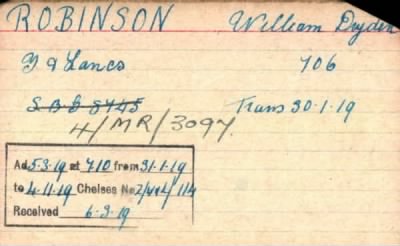 ROBINSON William Dryden
Y & Lancs 706
S.B.G 8445 Trans 30.1.19
4/MR/3097.
Ad 5.3.19 at 7.10 from 31.1.19
to 4.11.19 Chelsea No 2/
Received 6.3.19